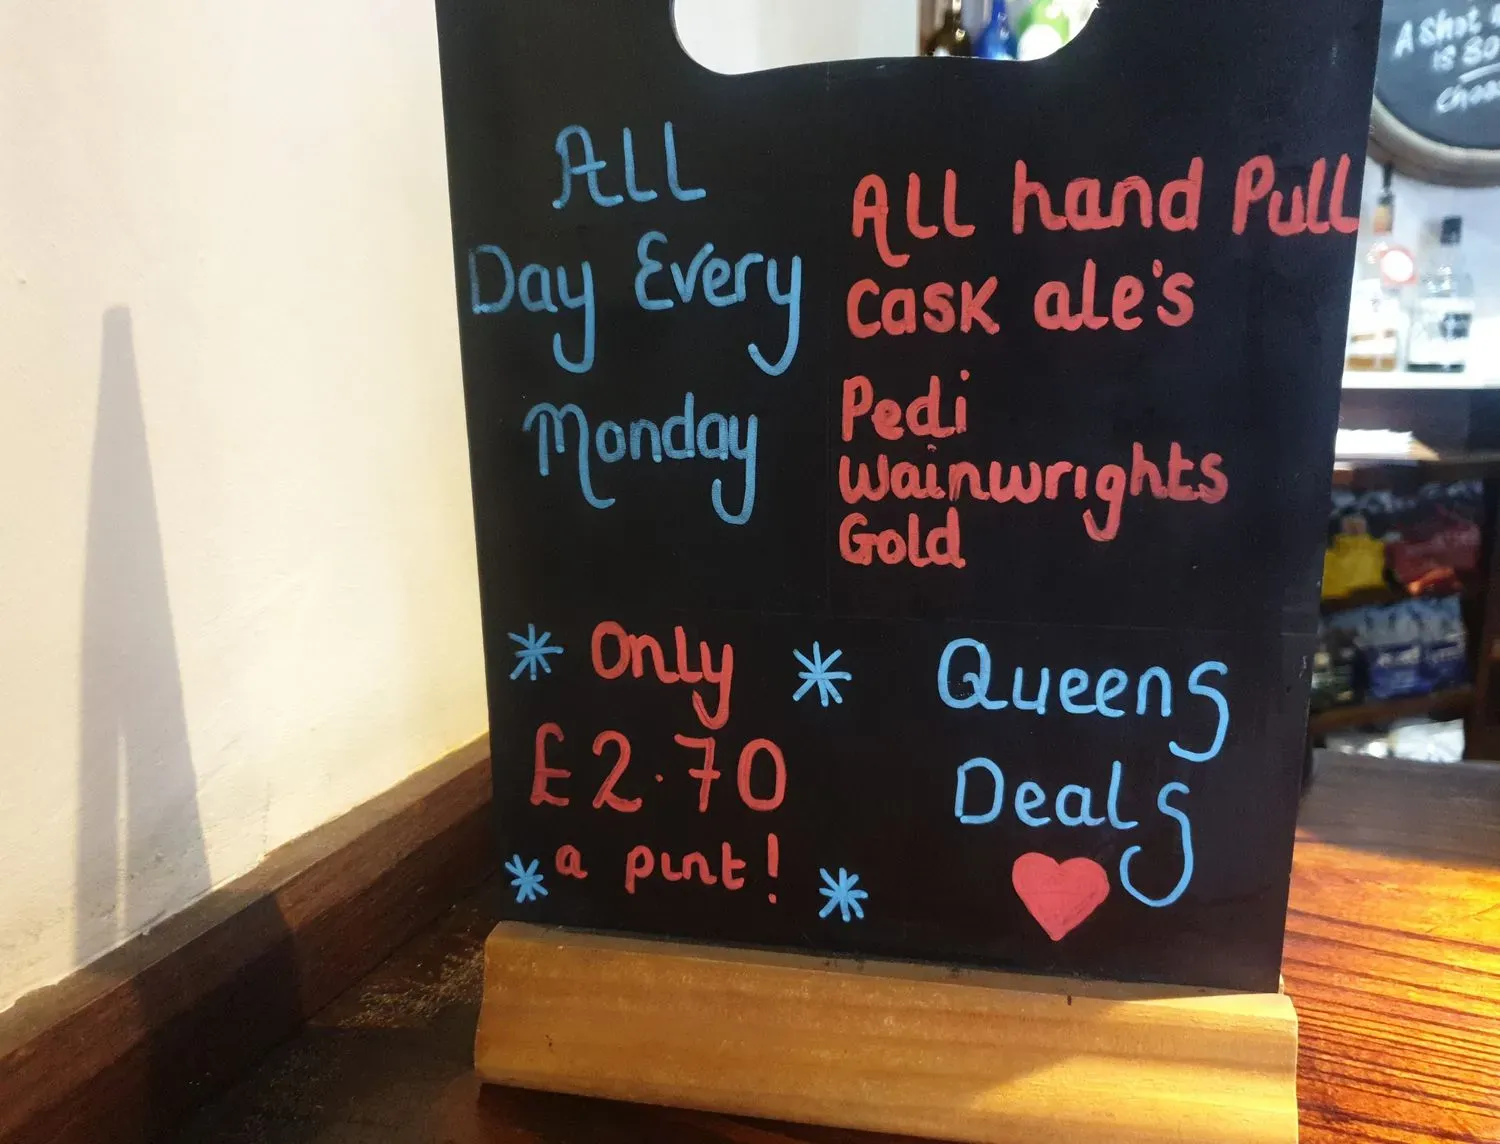 All
Day Every
Monday
All hand Pull
Cask ale's
Pedi
Wainwrights
Gold
Only
£2.70
a pint!
Queens
Deals
A Shot
is